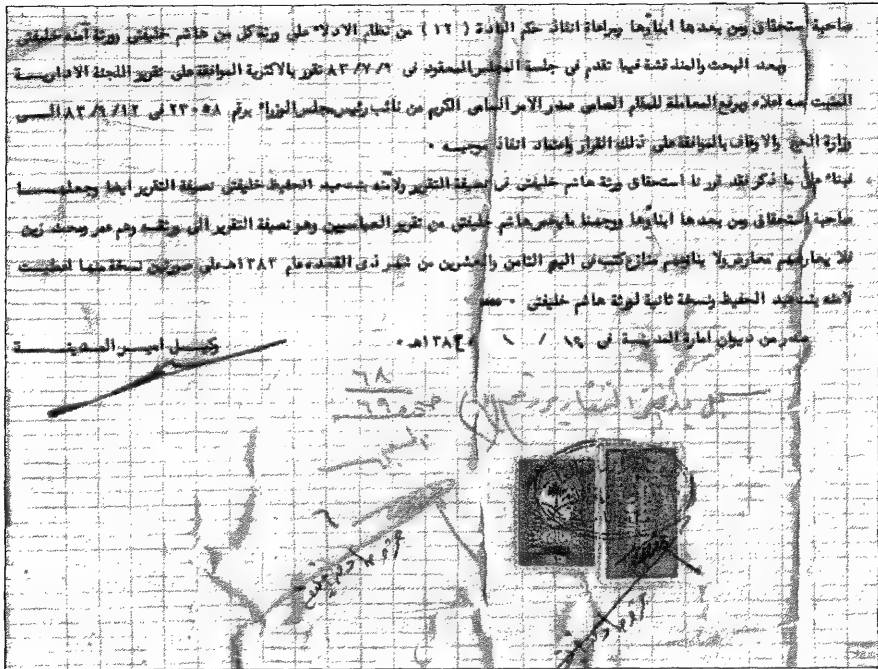 صاحبة استحقاق ومن بعدها ابناؤها وبراعاة انفاذ حكم المادة ( ١٢ ) من نظام الادلاء على ورثة كل من هاشم خليفتى وورثة آمنه خليفتى
وبعد البحث والمناقشة فيما تقدم فى جلسة المجلس المعقود فى ٨٣/٧/٩ تقرر بالاكثرية الموافقة على تقرير اللجنة الاداريـــة
المثبت نصه اعلاه وبرفع المعاملة للمقام السامى صدر الامر السامى الكريم من نائب رئيس مجلس الوزراء برقم ٢٣٠٥٨ فى ٨٣/٩/١٢ الــى
وزارة الحج والاوقاف بالموافقة على ذلك القرار واعتماد انفاذ موجبه .
فبناء على ما ذكر فقد قررنا استحقاق ورثة هاشم خليفتى فى نصيفة التقرير ولآمنه بنت عبد الحفيظ خليفتى نصيفة التقرير ايضا وجعلهـــا
صاحبة استحقاق ومن بعدها ابناؤها ووجهنا ما يخص هاشم خليفتى من تقرير وهو نصيفة التقرير الى ورثتـه وهم عمر ومحمد زين
فلا يعارضهم معارض ولا ينازعهم منازع كتب فى اليوم الثامن والعشرين من شهر ذى القعده عام ١٣٨٣هـ على صورتين نسخة منها اعطيـت
لآمنه بنت عبد الحفيظ ونسخة ثانية لورثة هاشم خليفتى .
صدر من ديوان امارة المدينـــة فى ١٩ / ١ / ١٣٨٤هـ .
وكيـــل اميـــر المـدينـــة
٦٨
سجل
صحيفة ٦٩